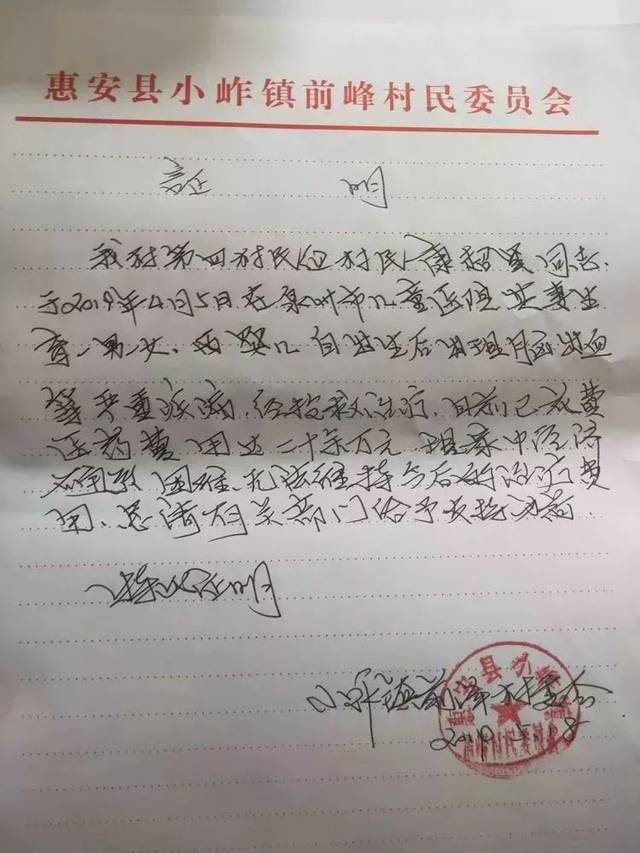 惠安县小岞镇前峰村民委员会
证 明
我村第四村民组村民康超贤同志,
于2019年4月5日在泉州市儿童医院共妻生
育一男一女、两婴儿自出生后出现
等严重疾病,经抢救治疗,目前已花费
医药费用达二十余万元,现家中经济
困难,无法维持今后的治疗费
用、恳请有关部门给予支持
特此证明
小岞镇前峰村委会
2019.